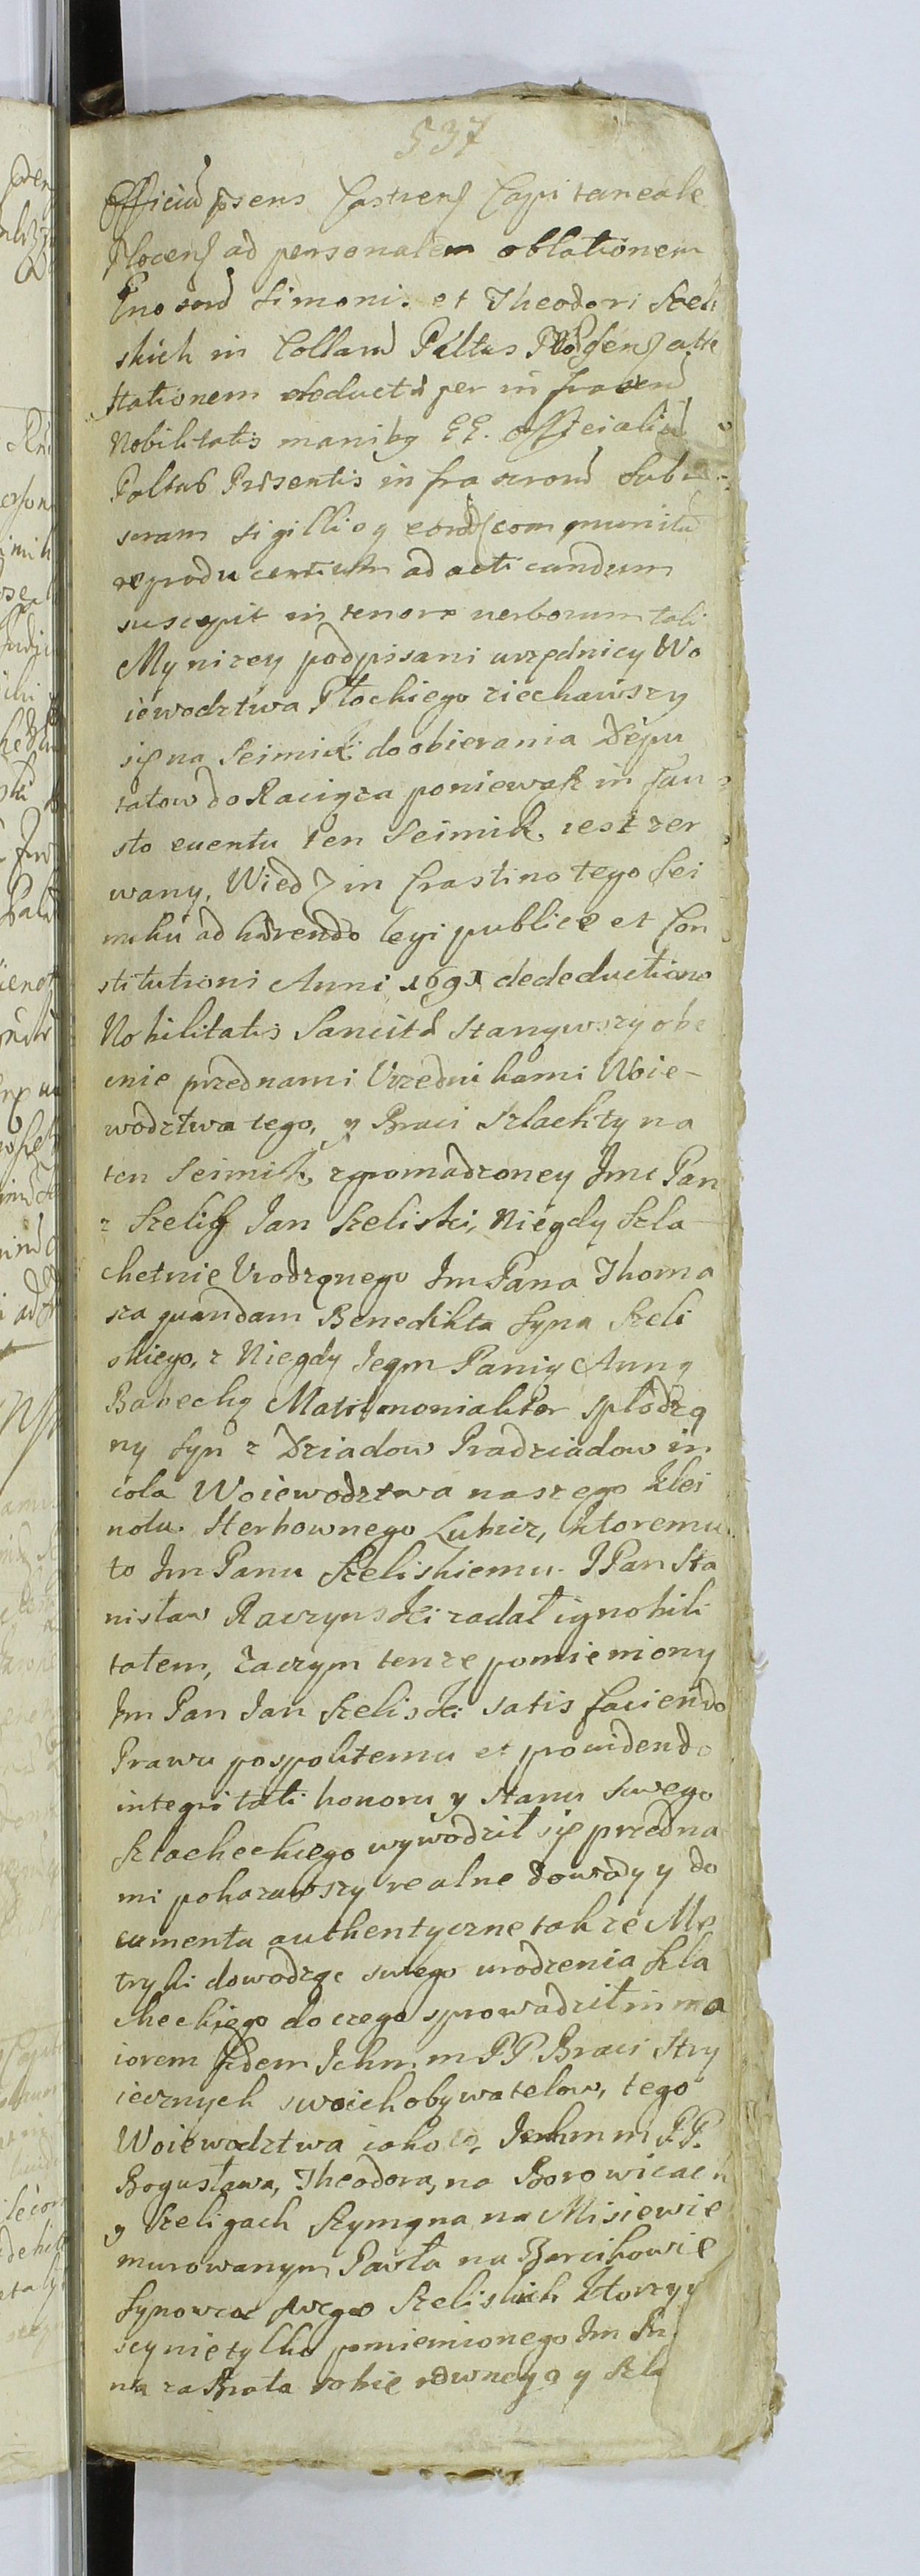 537
Officiũ psens Castrens Capitaneale
Plocens ad personalem oblationem
Gnosorũ Simonis et Theodori Szeli
skich in Collaud Pallus Plocens atte
stationem deductæ per infrascrip
Nobilitatis manibq EE. Officialiũ
Paltus Prisentis infrascrond Subs
scram sigillisq eord com munitã
reproducentium ad acticandum
suscepit in tenore uerborum tali
My nizey podpisani urzędnicy Wo
iewodztwa Płockiego ziechawszy
się na Seimik do obierania Depu
tatow do Raciąza poniewasz in fau
sto euentu ten Seimik iest zer
wany, Wiedz in Crastino tego Sei
miku ad hærendo legi publice et Con
stitutioni Anni 1691 de deductione
Nobilitatis Sancitæ Stanąwszy obe
cnie przed nami Urzędnikami Woie-
wodztwa tego, y Braci Szlachty na
ten Seimik zgromadzoney Jmc Pan
z Szelig Jan Szeliski, Niegdy Szla
chetnie Urodzonego Jm Pana Thoma
sza quandam Benedikta Syna Szeli
skiego, z Niegdy Jegm Paniy Anny
Babecky Matrimonialiter spłodzo
ny Syn z Dziadow Pradziadow in
cola Woiewodztwa naszego Klei
notu Herbownego Lubicz, ktoremu
to Jm Panu Szeliskiemu JPan Sta
nisław Raczynski zadał ignobili
tatem, Zaczym tenze pomieniony
Jm Pan Jan Szeliski satis faciendo
Prawu pospolitemu et prouidendo
integritati honoru y stanu swego
Szlacheckiego wywodził się przed na
mi pokazawszy realne dowody y do
cumenta authentyczne takze Me
tryki dowodząc swego urodzenia Szla
checkiego do czego sprowadził in ma
iorem fidem Ichmm PP Braci Stry
iecznych swoich obywatelow, tego
Woiewodztwa iako to, Ichmm PP.
Bogusława, Theodora, na Borowicach
y Szeligach Szymona na Misiewie
murowanym Pawła na Barcikowie
Synowca swego Szeliskich ktorzy
scy nie tylko pmienionego Jm Pa
na za Brata sobie rownego y Szla